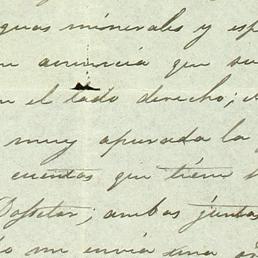 guas minerales y esp
anuncia que su
en el lado derecho;
muy apurada la
cuentas que tiene
Dossetor; ambas juntas
me envía una